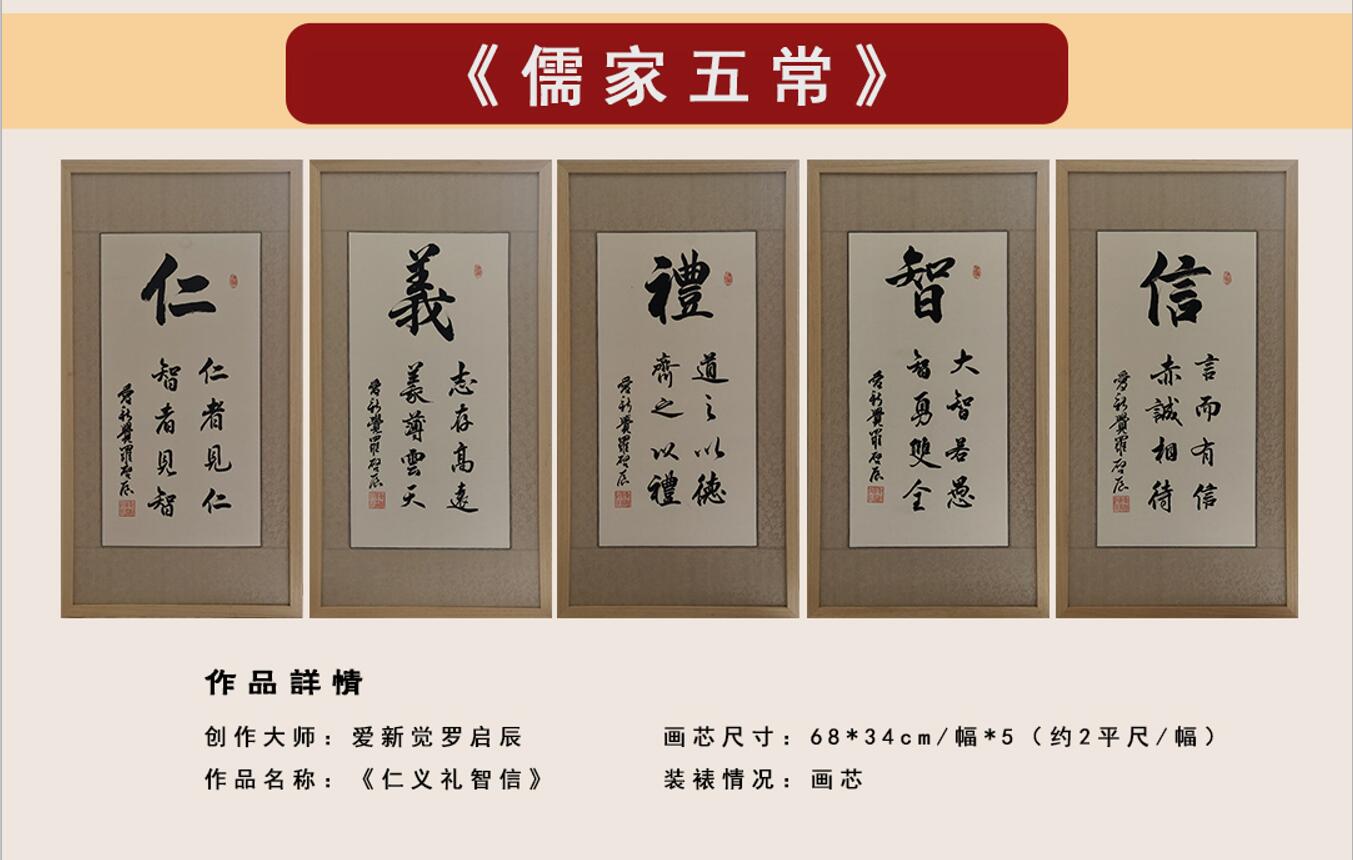 《儒家五常》
仁
仁者見仁
智者見智
爱新覺羅启辰
義
志存高遠
義薄雲天
爱新覺羅启辰
禮
道之以德
齊之以禮
爱新覺羅启辰
智
大智若愚
智勇雙全
爱新覺羅启辰
信
言而有信
赤誠相待
爱新覺羅启辰
作品詳情
创作大师：爱新觉罗启辰
画芯尺寸：68*34cm/幅*5（约2平尺/幅）
作品名称：《仁义礼智信》
装裱情况：画芯